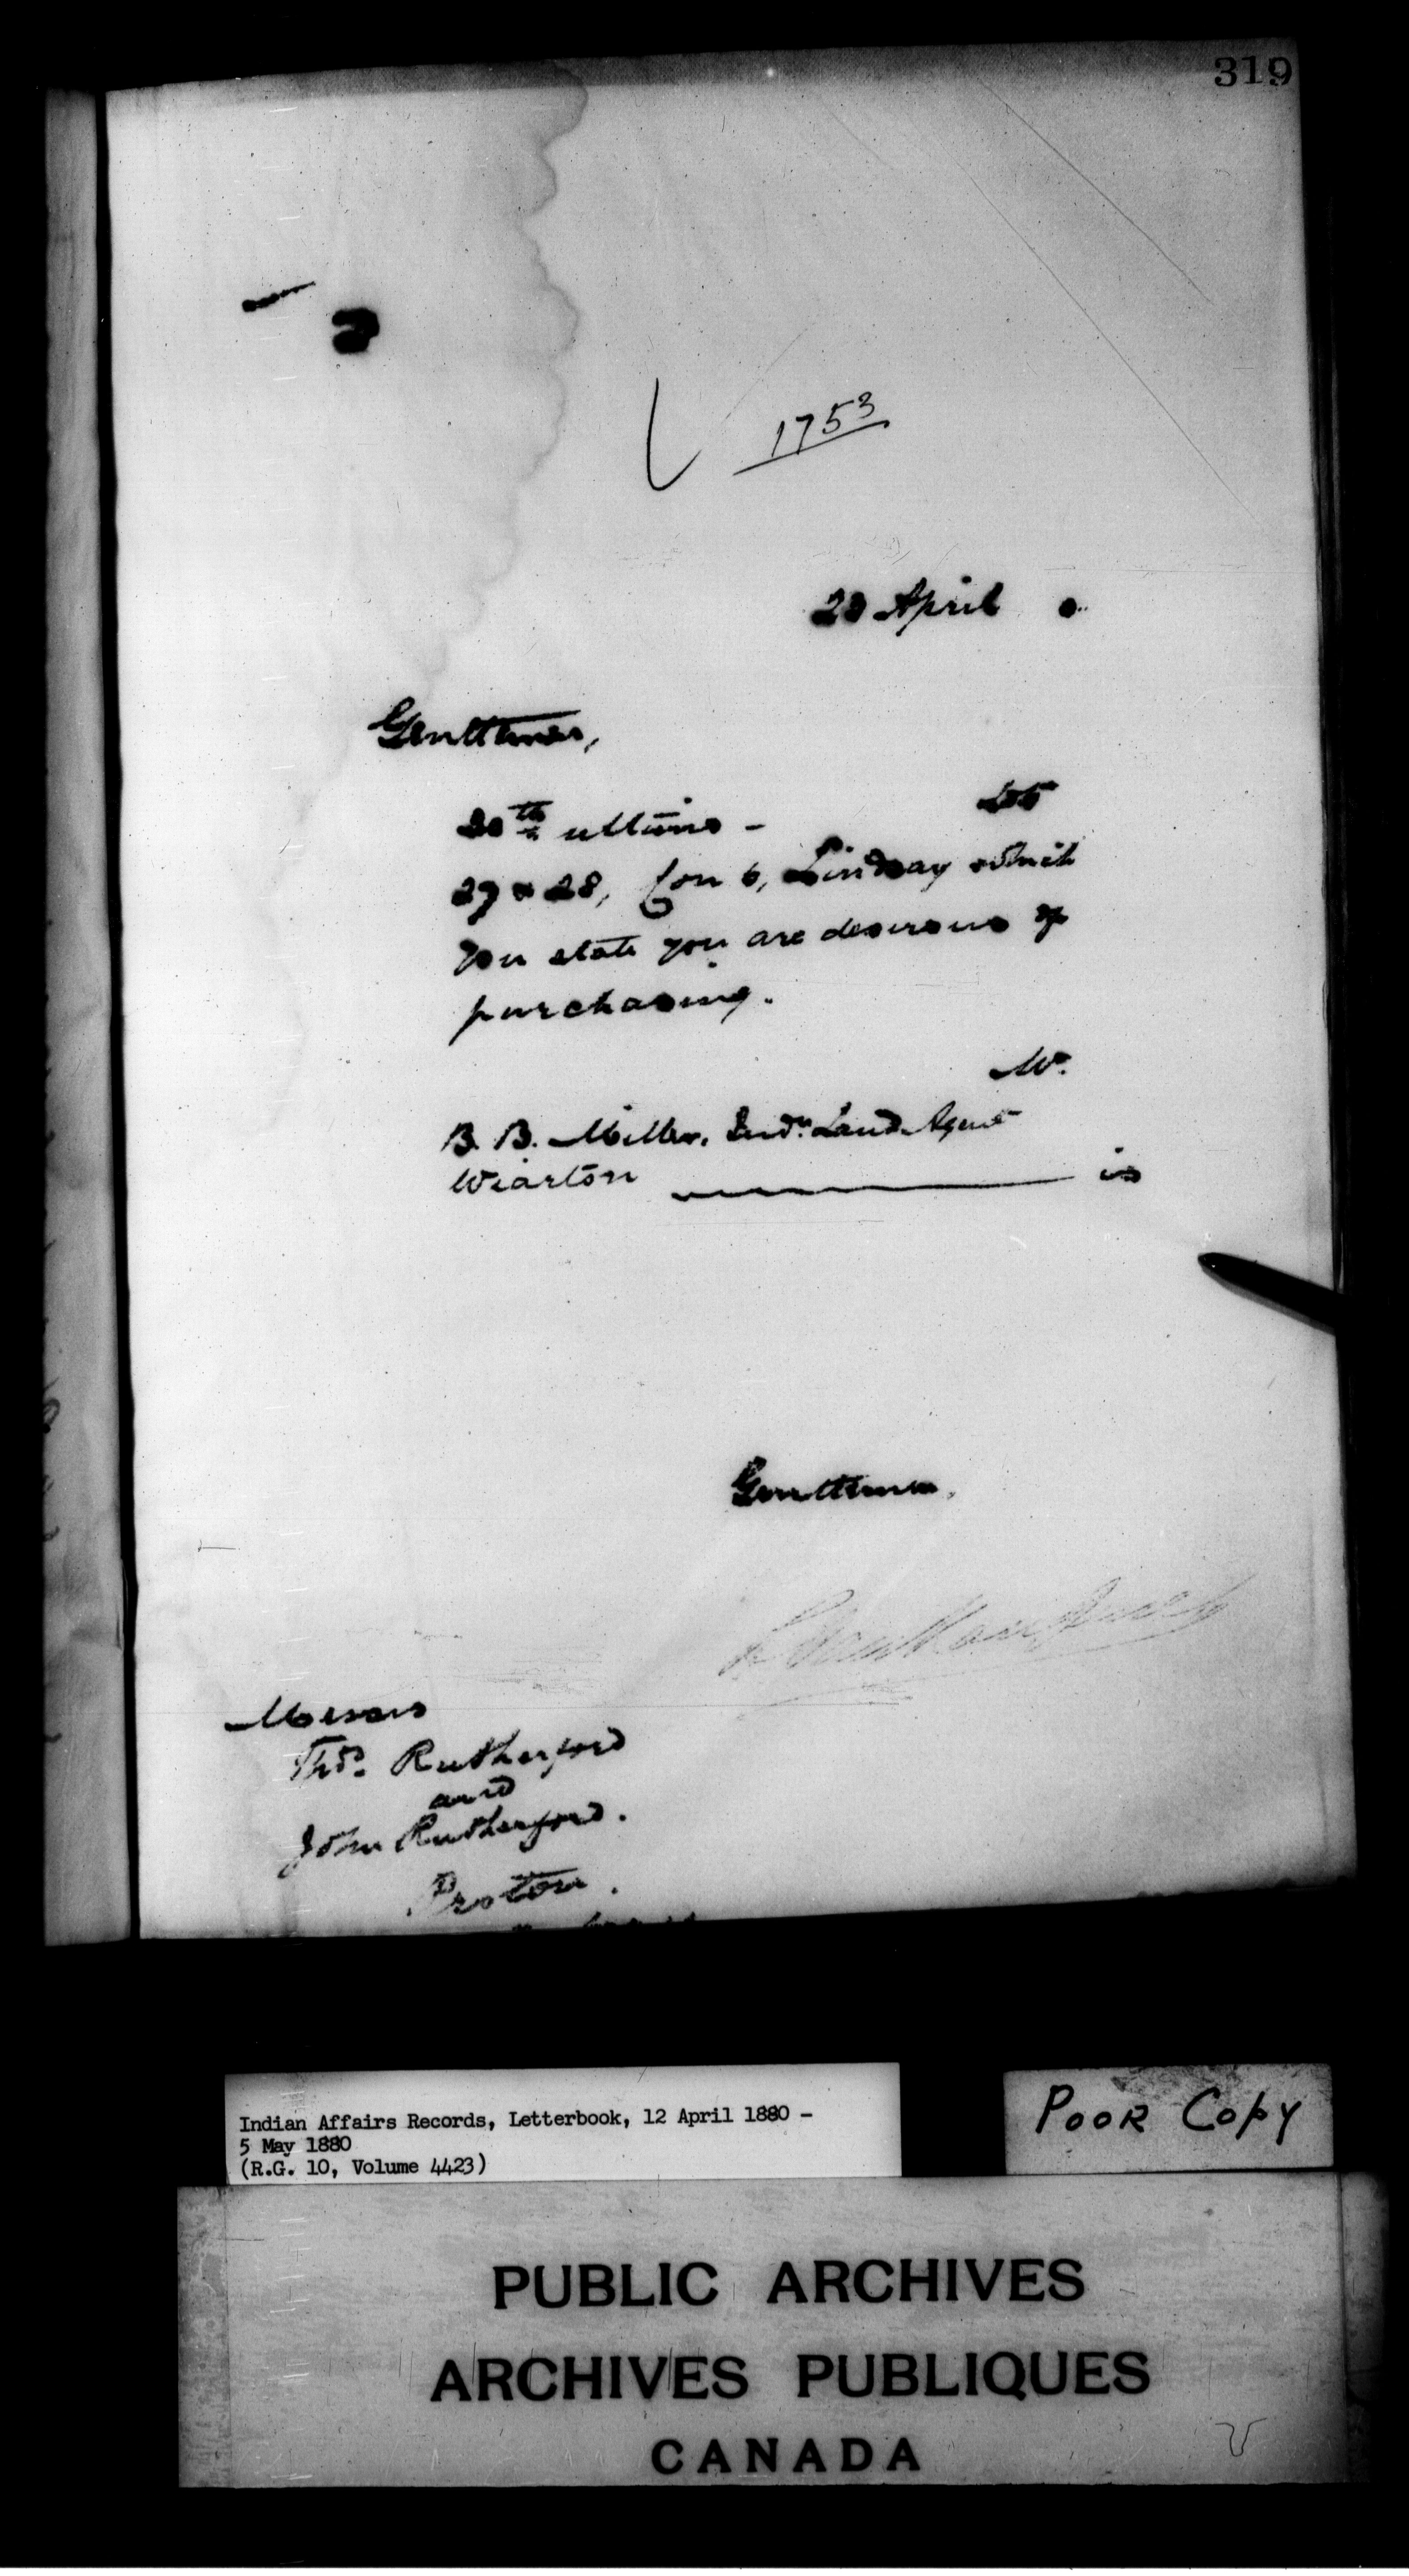 319
1753
April
Gentlemen,
th ultimo - Lots
27 & 28, Con 6, Lindsay which
you state you are desirous of
purchasing.
Mr.
B. B. Miller, Indn. Land Agent
Wiarton is
Gentlemen,
Messrs
Thos. Rutherford
and
John Rutherford.
Proton.
Indian Affairs Records, Letterbook, 12 April 1880 -
5 May 1880
(R.G. 10, Volume 4423)
POOR COPY
PUBLIC ARCHIVES
ARCHIVES PUBLIQUES
CANADA